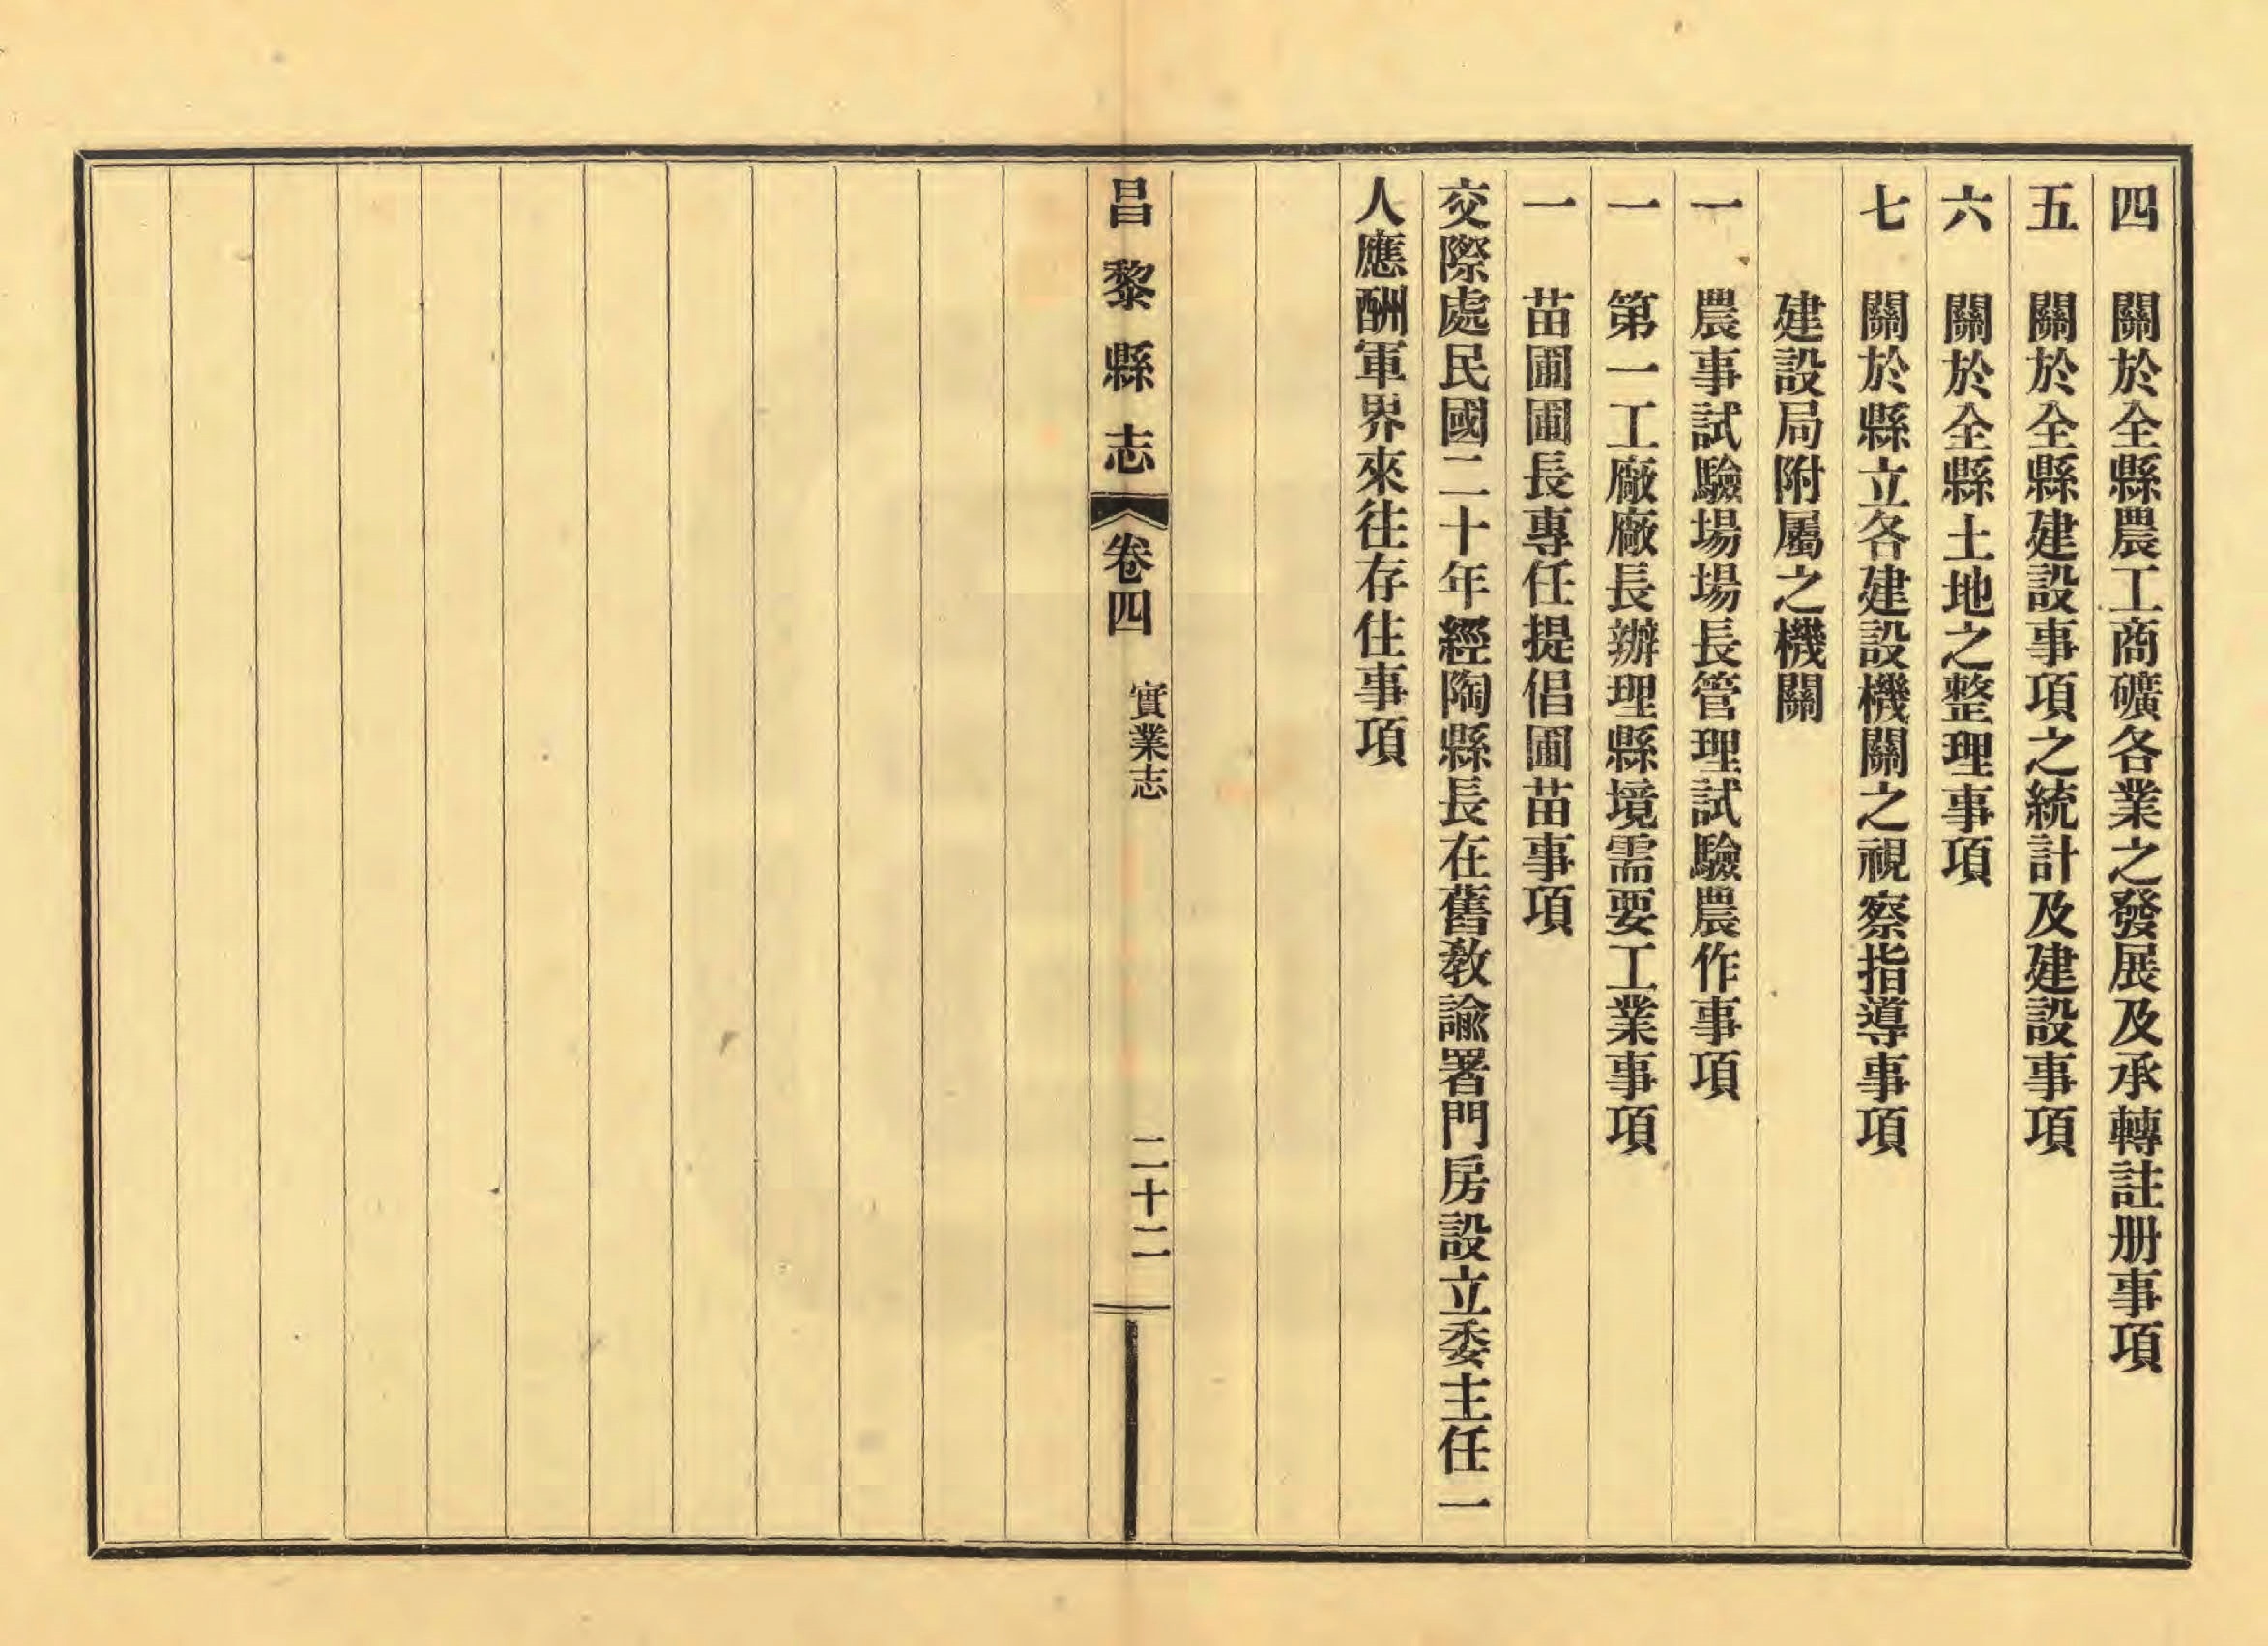 四　關於全縣農工商礦各業之發展及承轉註册事項
五　關於全縣建設事項之統計及建設事項
六　關於全縣土地之整理事項
七　關於縣立各建設機關之視察指導事項
建設局附屬之機關
一　農事試驗場場長管理試驗農作事項
一　第一工廠廠長辦理縣境需要工業事項
一　苗圃圃長專任提倡圃苗事項
交際處民國二十年經陶縣長在舊教諭署門房設立委主任一
人應酬軍界來往存住事項
昌黎縣志　卷四　實業志　二十二